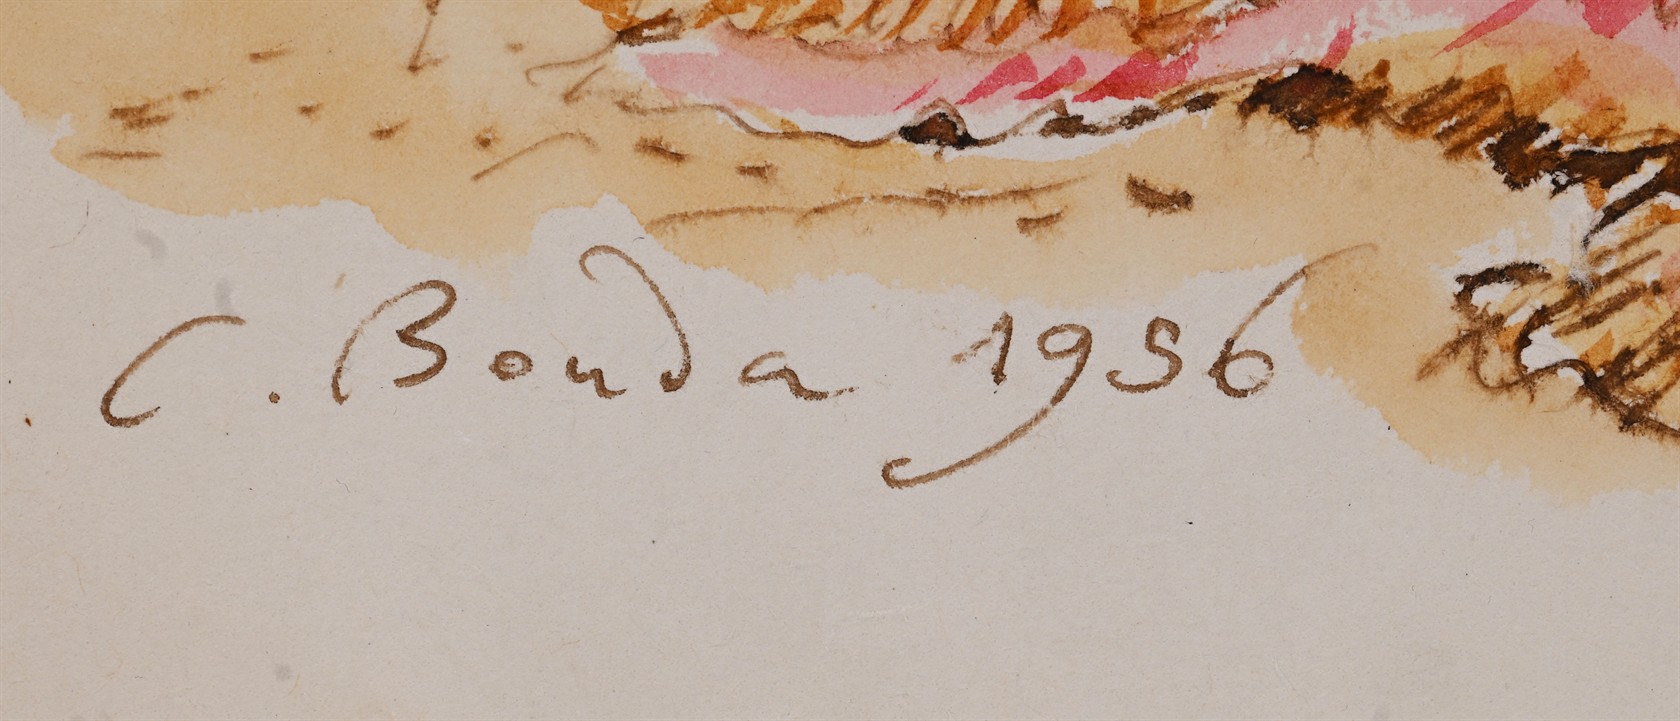 C. Bouda 1956